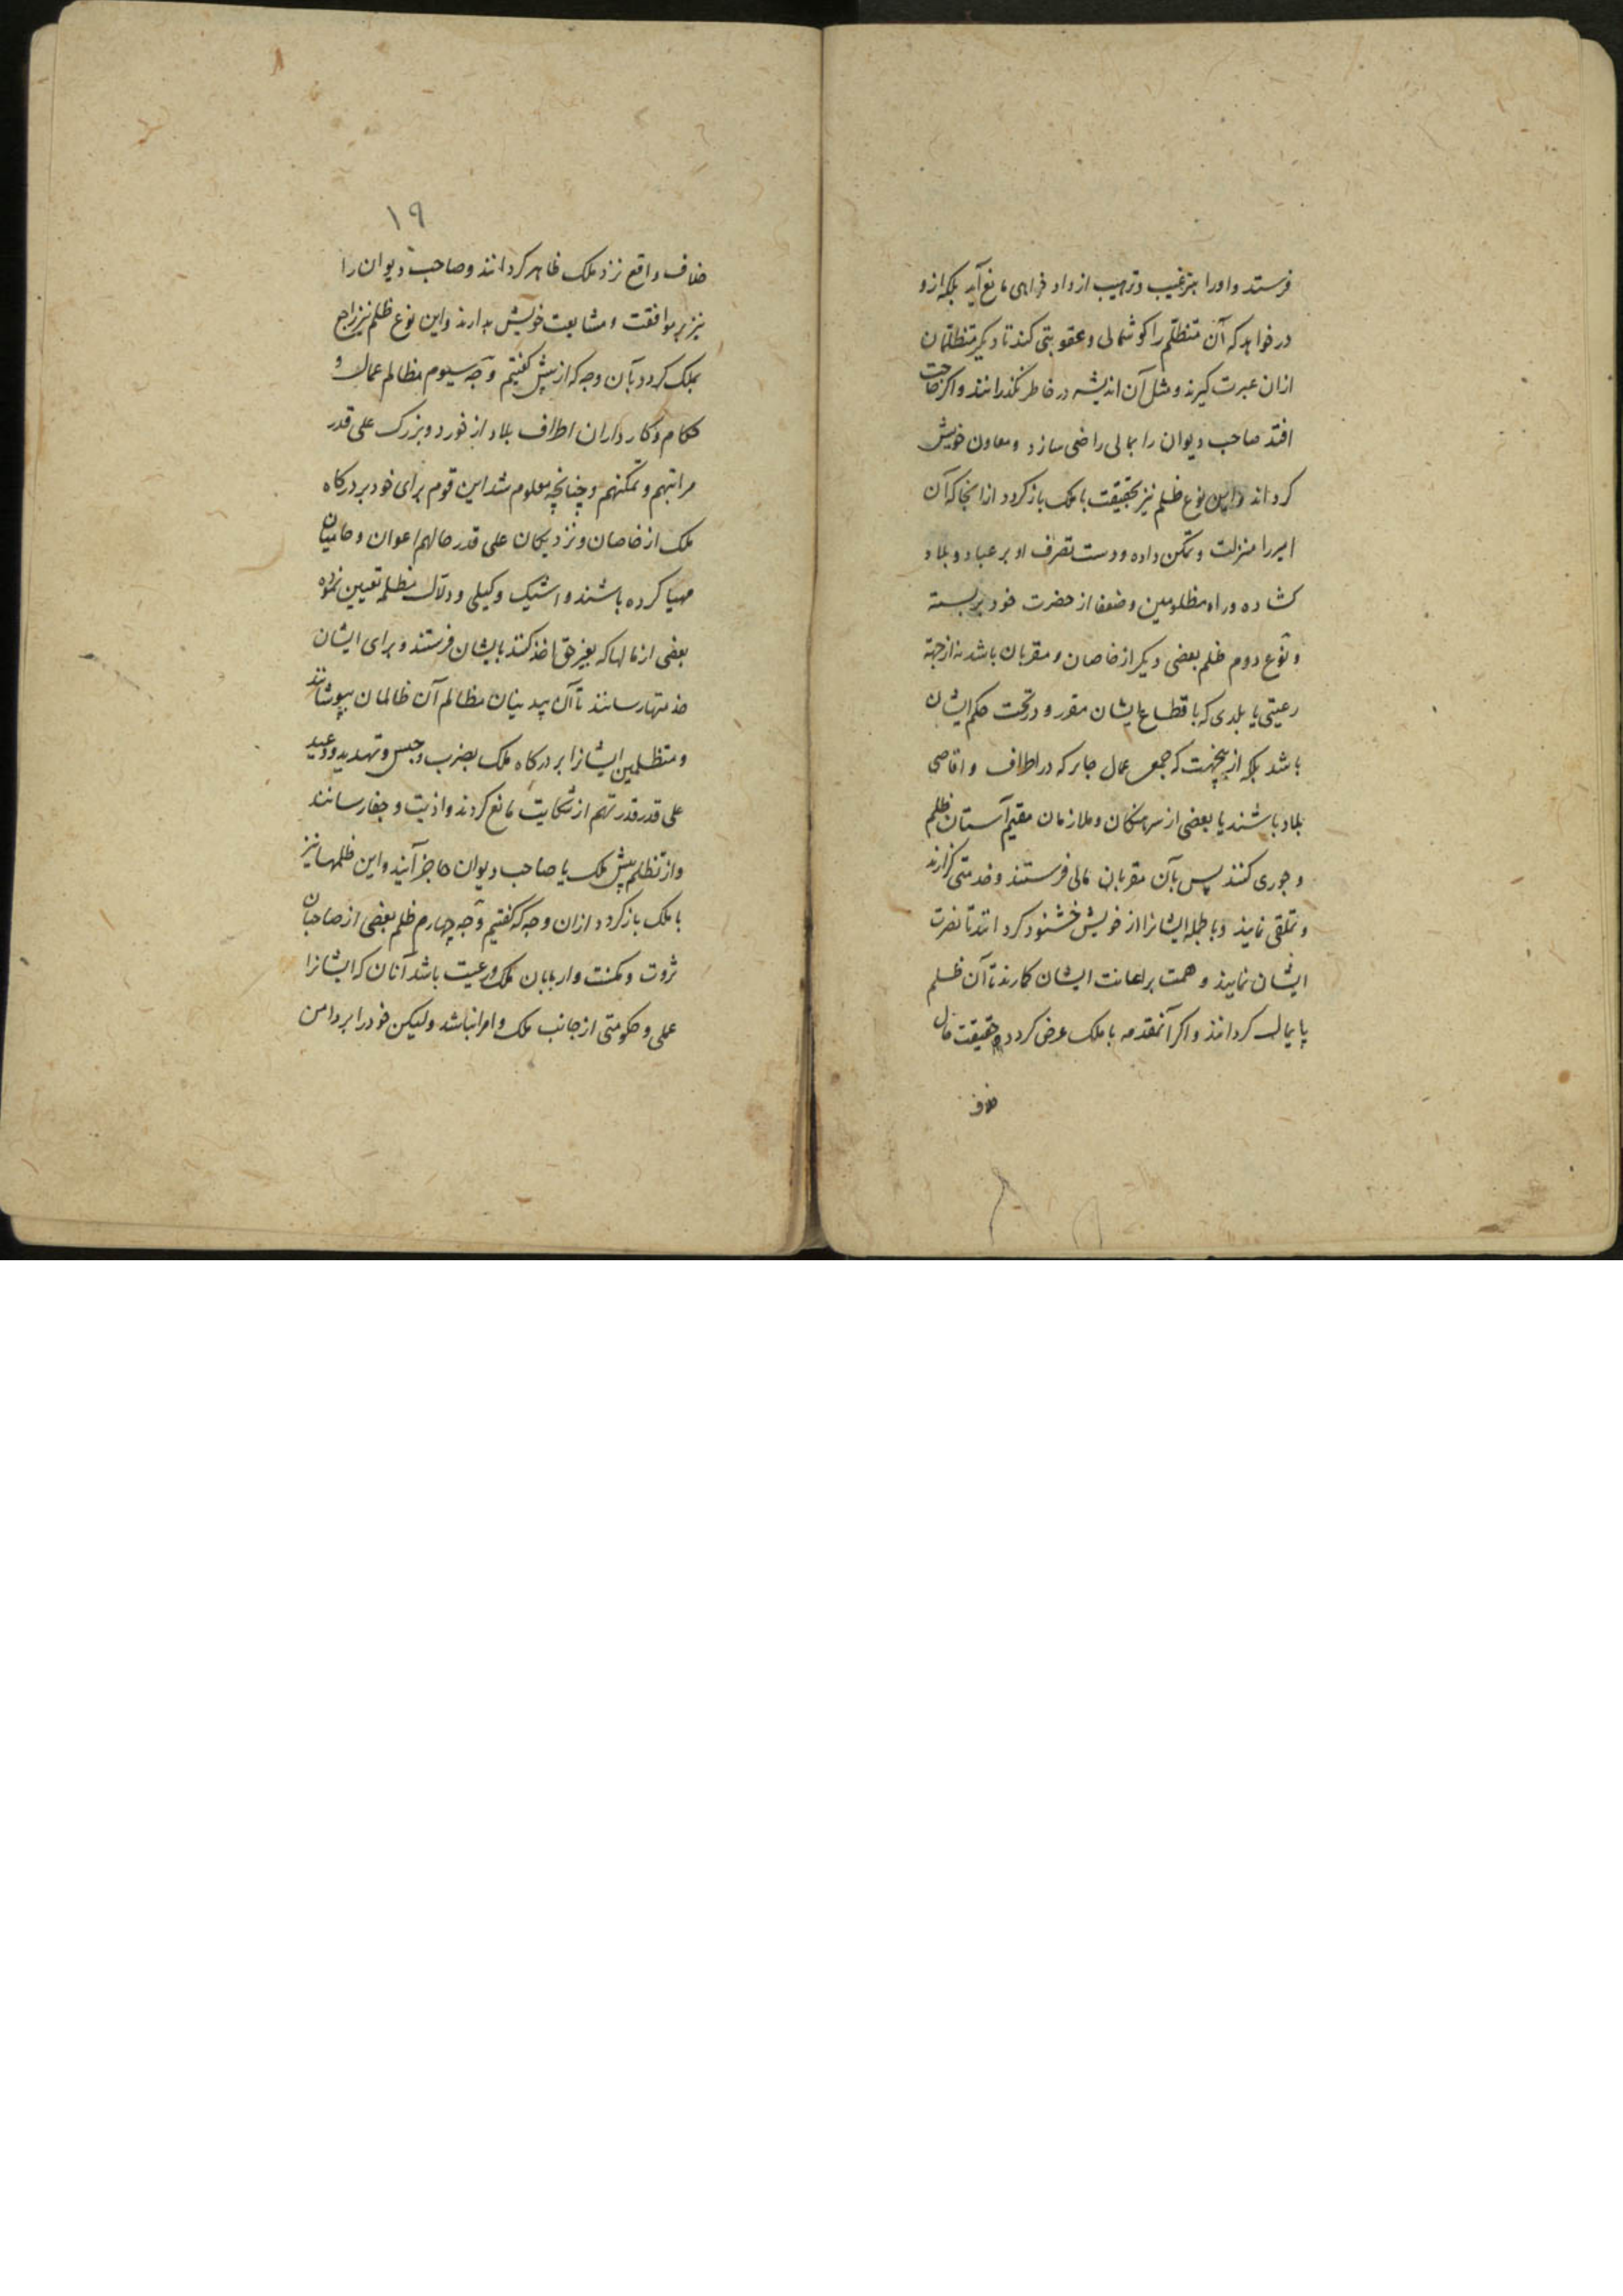 فرستد و اورا بترغیب و ترهیب از داد خواهی مانع آید بلکه ازو
درخواهد که آن متظلم را گوشمالی و عقوبتی کند تا دیگر متظلمان
ازان عبرت گیرند و مثل آن اندیشه در خاطر نگذرانند و اگر حاجت
افتد صاحب دیوان را بمالی راضی سازد و معاون خویش
گرداند و این نوع ظلم نیز بحقیقت با ملک باز گردد ازانجا که آن
امیر را منزلت و تمکن داده و دست تصرف او بر عباد و بلاد
گشاده و راه مظلومین و ضعفا از حضرت خود بربسته
و نوع دوم ظلم بعضی دیگر از خاصان و مقربان باشد نه از جهة
رعیتی یا بلدی که باقطاع ایشان مقرر و در تحت حکم ایشان
باشد بلکه ازینجهت که جمعی عمال جابر که در اطراف و اقاصی
بلاد باشند یا بعضی از سرهنگان و ملازمان مقیم آستان ظلم
و جوری کنند پس بآن مقربان مالی فرستند و خدمتی گزارند
و تملقی نمایند و بالجمله ایشانرا از خویش خشنود گردانند تا نصرت
ایشان نمایند و همت بر اعانت ایشان گمارند تا آن ظلم
پایمال گردانند و اگر آنمقدمه با ملک عرض گردد حقیقت حال
خلاف
۱۹
خلاف واقع نزد ملک ظاهر گردانند و صاحب دیوان را
نیز بر موافقت و متابعت خویش بدارند و این نوع ظلم نیز راجع
بملک گردد بآن وجه که از پیش گفتیم وجه سیوم مظالم عمال و
حکام و کارداران اطراف بلاد از خورد و بزرگ علی قدر
مراتبهم و تمکنهم و چنانچه معلوم شد این قوم برای خود بر درگاه
ملک از خاصان و نزدیکان علی قدر حالهم اعوان و حامیان
مهیا کرده باشند و اشتیک وکیلی و دلال مظلمه تعیین نموده
بعضی از مالها که بغیر حق اخذ کنند بایشان فرستند و برای ایشان
خدمتها رسانند تا آن بیدینان مظالم آن ظالمان بپوشانند
و متظلمین ایشانرا بر درگاه ملک بضرب و حبس و تهدید و وعید
علی قدر قدرتهم از شکایت مانع گردند و اذیت و جفا رسانند
و از تظلم پیش ملک یا صاحب دیوان حاجز آیند و این ظلمها نیز
با ملک باز گردد ازان وجه که گفتیم وجه چهارم ظلم بعضی از صاحبان
ثروت و مکنت و اربابان ملک و رعیت باشد آنان که ایشانرا
عملی و حکومتی از جانب ملک و امرا نباشد ولیکن خود را بر دامن